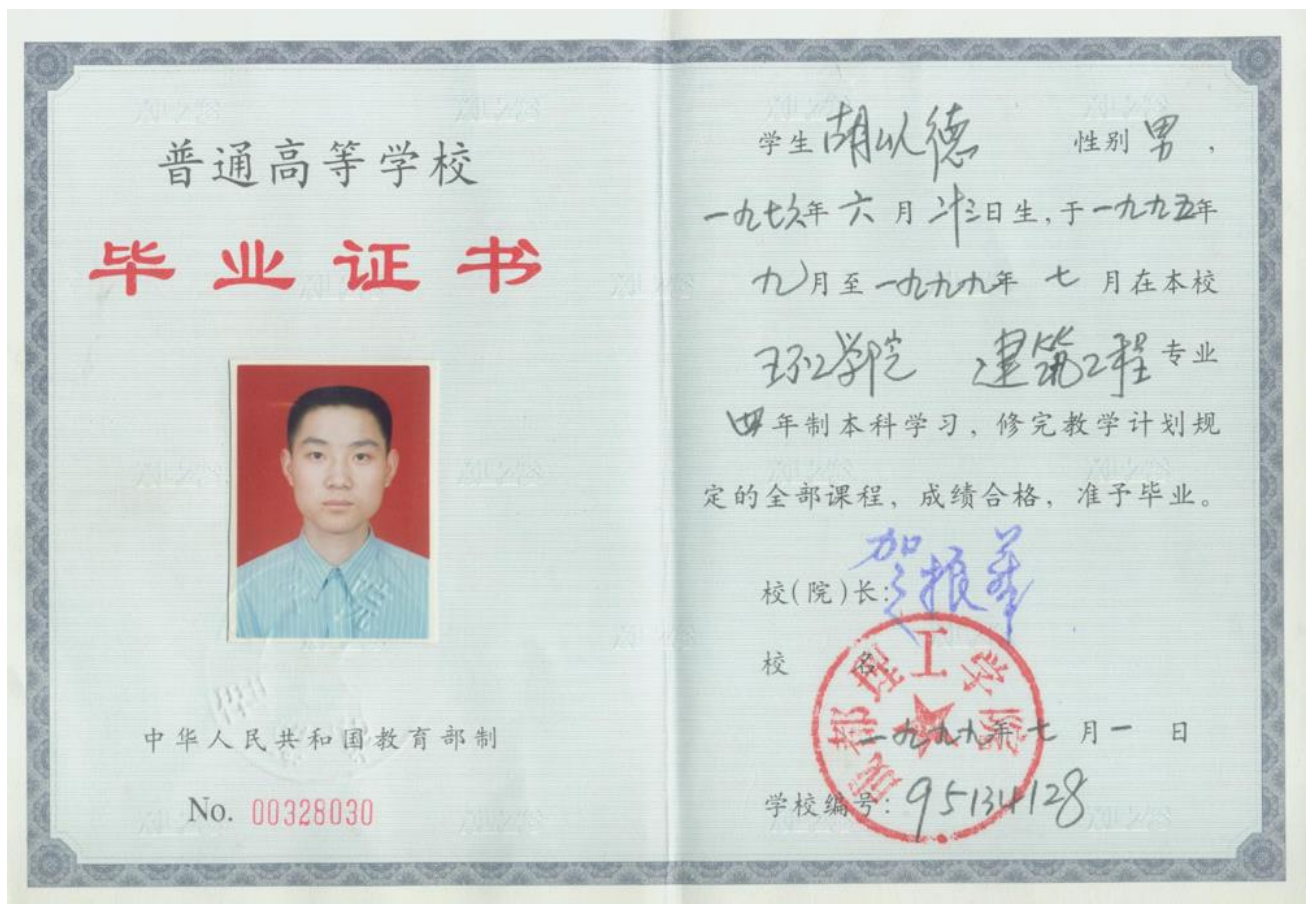 普通高等学校
毕业证书
中华人民共和国教育部制
No. 00328030
学生 胡以德 性别 男,
一九七六年 六 月 廿三日生,于一九九五年
九月至一九九九年 七 月在本校
环工学院 建筑工程 专业
四年制本科学习,修完教学计划规
定的全部课程,成绩合格,准予毕业。
校(院)长:贺振华
校 名
成都理工学院
一九九九年七 月一 日
学校编号:95134128